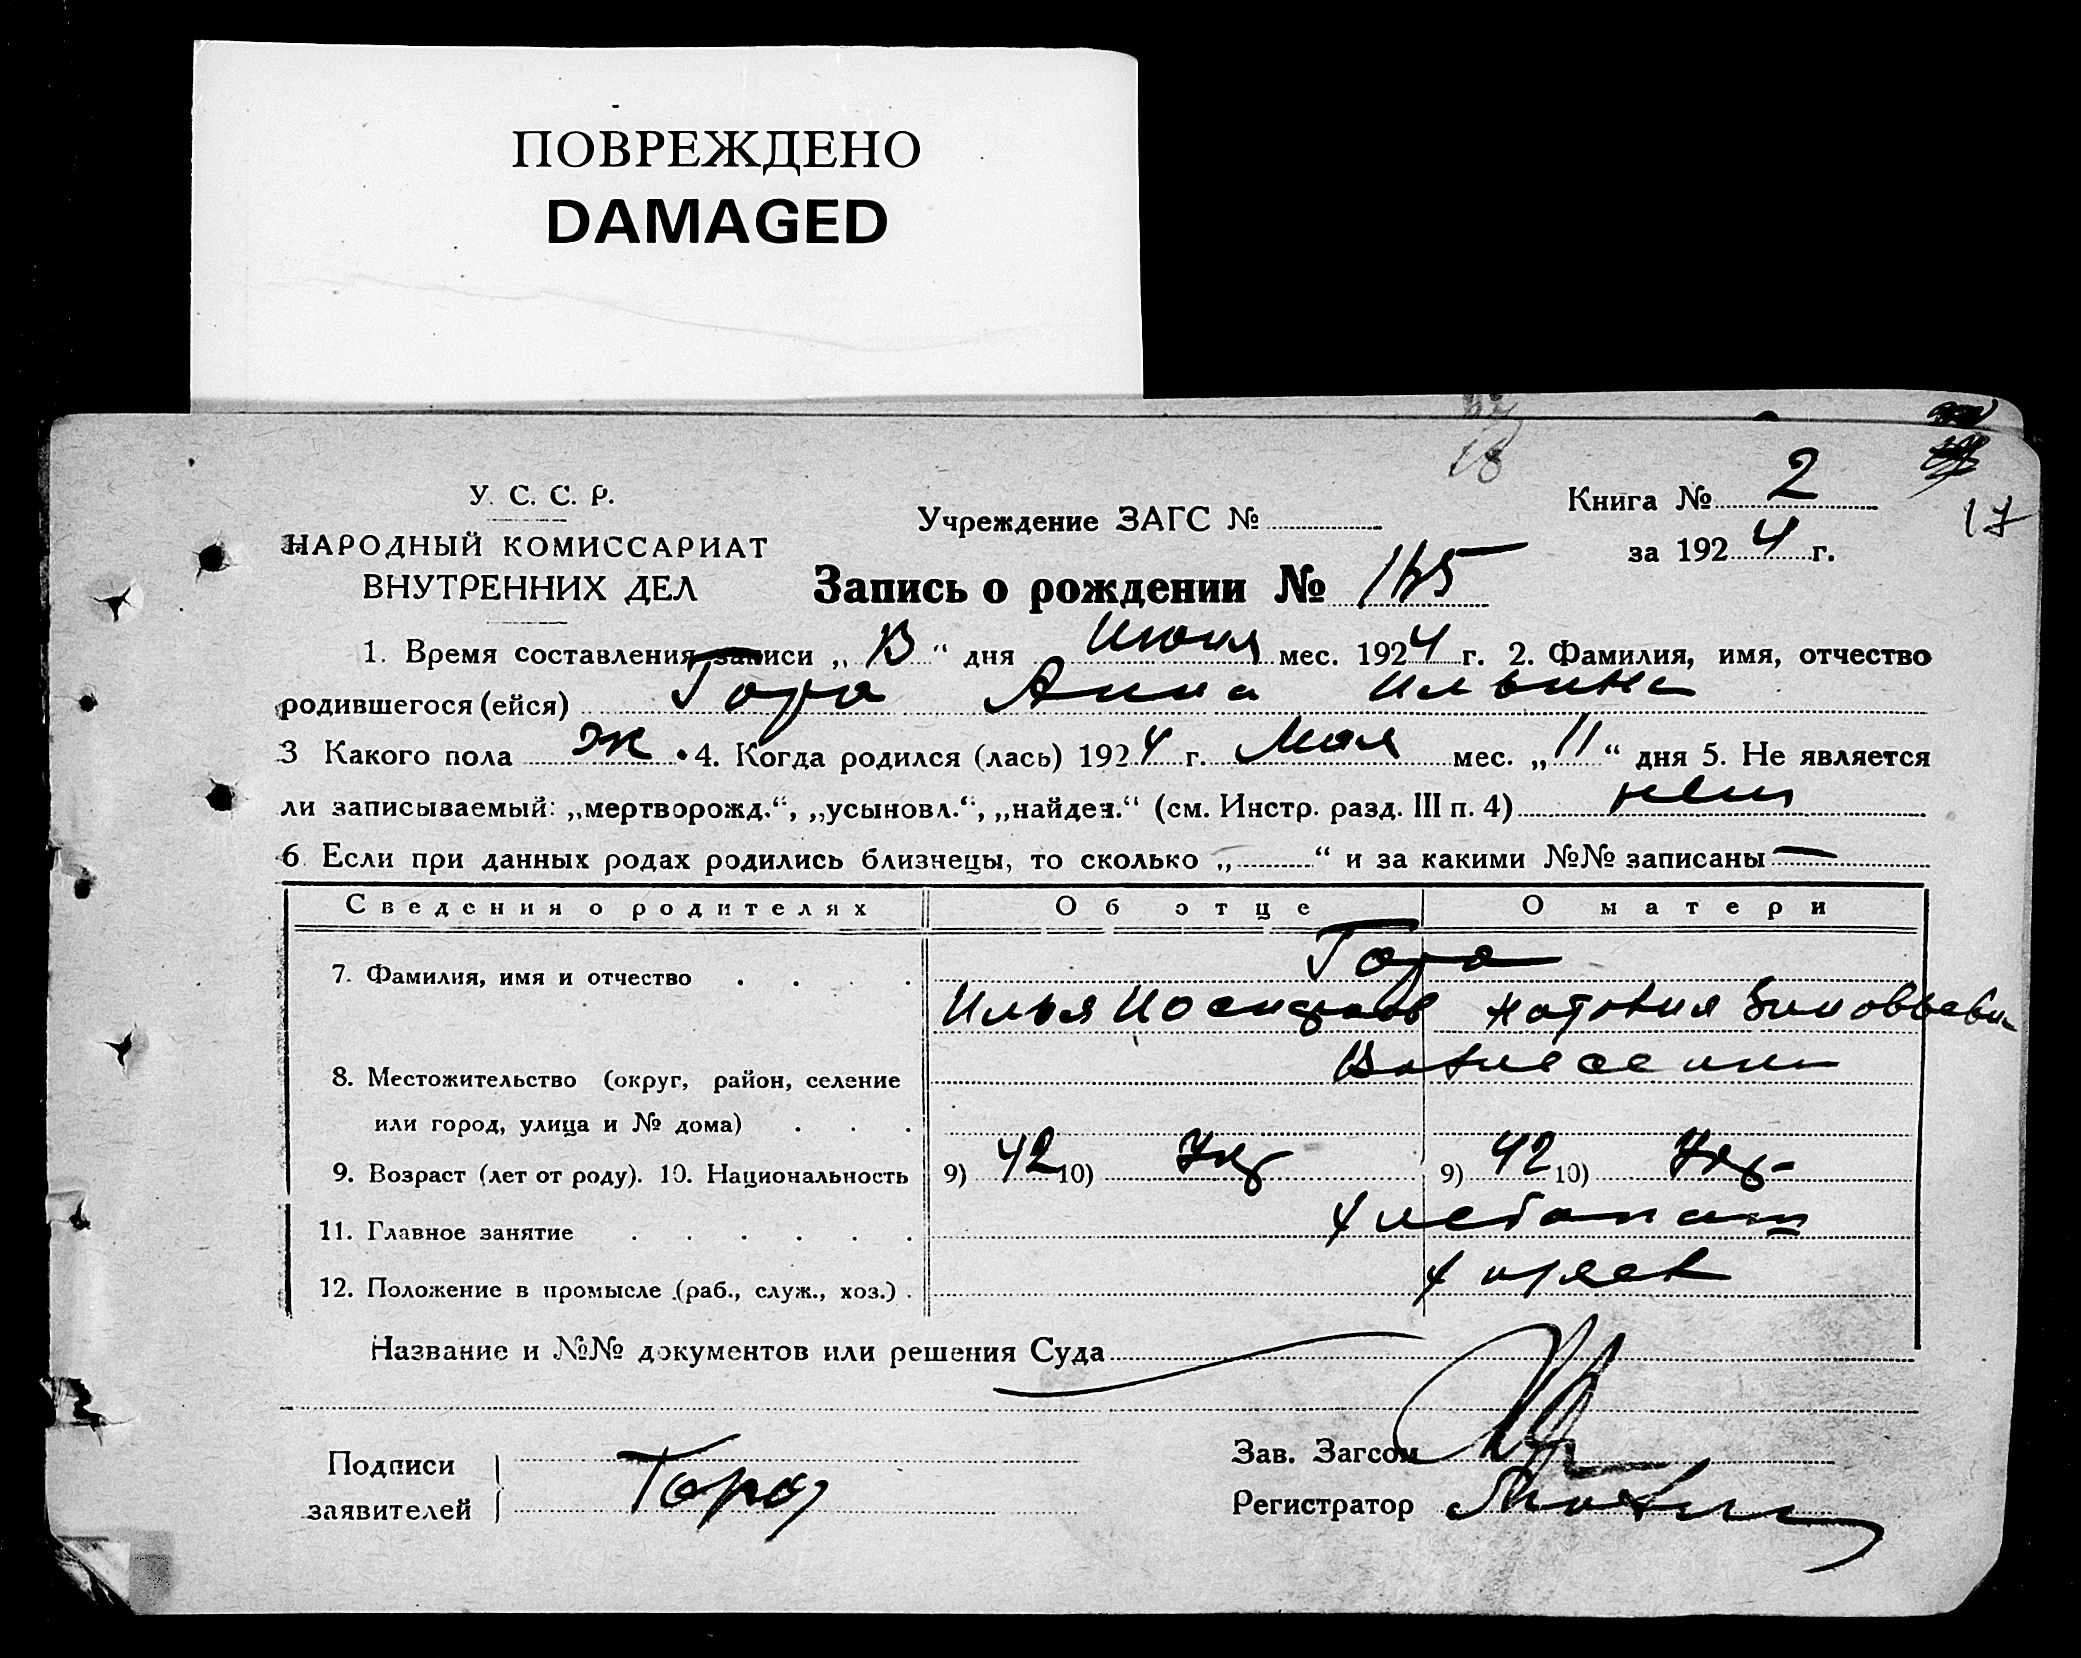 ПОВРЕЖДЕНО
DAMAGED
У. С. С. Р.
НАРОДНЫЙ КОМИССАРИАТ
ВНУТРЕННИХ ДЕЛ
Учреждение ЗАГС №
Книга № 2
17
за 1924 г.
Запись о рождении №
1. Время составления записи „ " дня Июня мес. 1924 г. 2. Фамилия, имя, отчество
родившегося (ейся) Гора Анна Ильинс
3 Какого пола ж. 4. Когда родился (лась) 1924 г. Мая мес. „11" дня 5. Не является
ли записываемый: „мертворожд.", „усыновл.", „найден." (см. Инстр. разд. III п. 4)
6. Если при данных родах родились близнецы, то сколько „ " и за какими №№ записаны —
Сведения о родителях Об отце О матери
Гора
7. Фамилия, имя и отчество
Илья Иосифов Зиновьевн
8. Местожительство (округ, район, селение
или город, улица и № дома)
9. Возраст (лет от роду). 10. Национальность 9) 42 10) Укр 9) 42 10) Укр-
11. Главное занятие Хлебопаш
12. Положение в промысле (раб., служ., хоз.)
Название и №№ документов или решения Суда
Подписи
заявителей Гора
Зав. Загсом
Регистратор